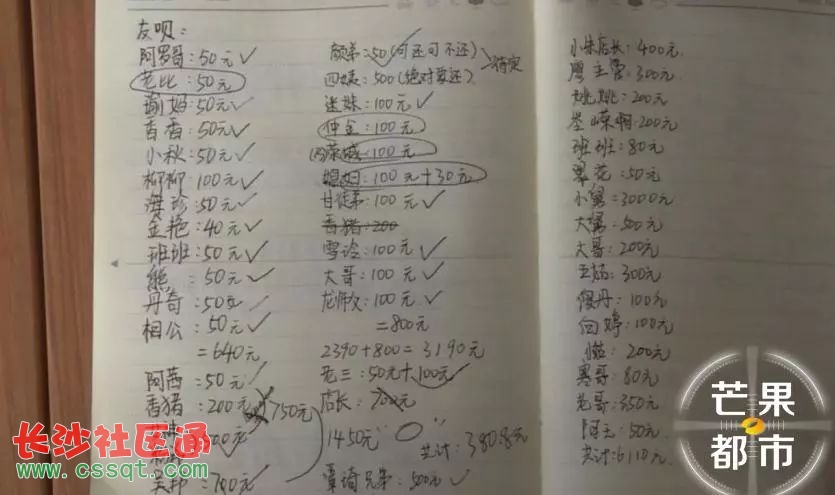 友呗:
阿罗哥:50元
老比:50元
瑜妈:50元
香香:50元
小秋:50元
柳柳:100元
海珍:50元
金艳:40元
班班:50元
熊:50元
丹奇:50元
相公:50元
=640元
阿茜:50元
香猪:200元
750元
500元
吴邦:700元
颜弟:50(可还可不还)
四姨:500(绝对要还)
待定
迷妹:100元
仲金:100元
100元
媳妇:100元+30元
甘徒弟:100元
香猪:200
雪冷:100元
大哥:100元
龙师父:100元
=800元
2390+800=3190元
老三:50元+100元
店长:700元
1450元
共计:3808元
覃琦兄弟:500元
小朱店长:400元
廖主管:300元
姚姚:200元
200元
班班:80元
翠花:50元
小舅:3000元
大舅:500元
大哥:200元
五姑:300元
傻丹:100元
向婷:100元
200元
寒哥:80元
老哥:350元
50元
共计:6110元
芒果
都市
长沙社区通
www.cssqt.com